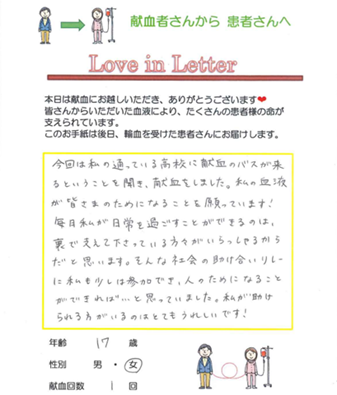 献血者さんから 患者さんへ
Love in Letter
本日は献血にお越しいただき、ありがとうございます❤
皆さんからいただいた血液により、たくさんの患者様の命が
支えられています。
このお手紙は後日、輸血を受けた患者さんにお届けします。
今回は私の通っている高校に献血のバスが来
るということを聞き、献血をしました。私の血液
が皆さまのためになることを願っています!
毎日私が日常を過ごすことができるのは、
裏で支えて下さっている方々がいらっしゃるから
だと思います。そんな社会の助け合いリレー
に私も少しは参加でき、人のためになること
ができれば…と思っていました。私が助け
られる方がいるのはとてもうれしいです!
年齢 17 歳
性別 男・女
献血回数 1 回